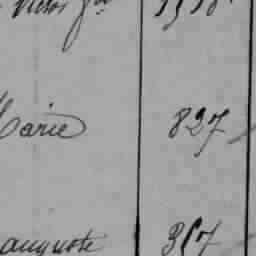 Victor
Marie 827
auguste 357